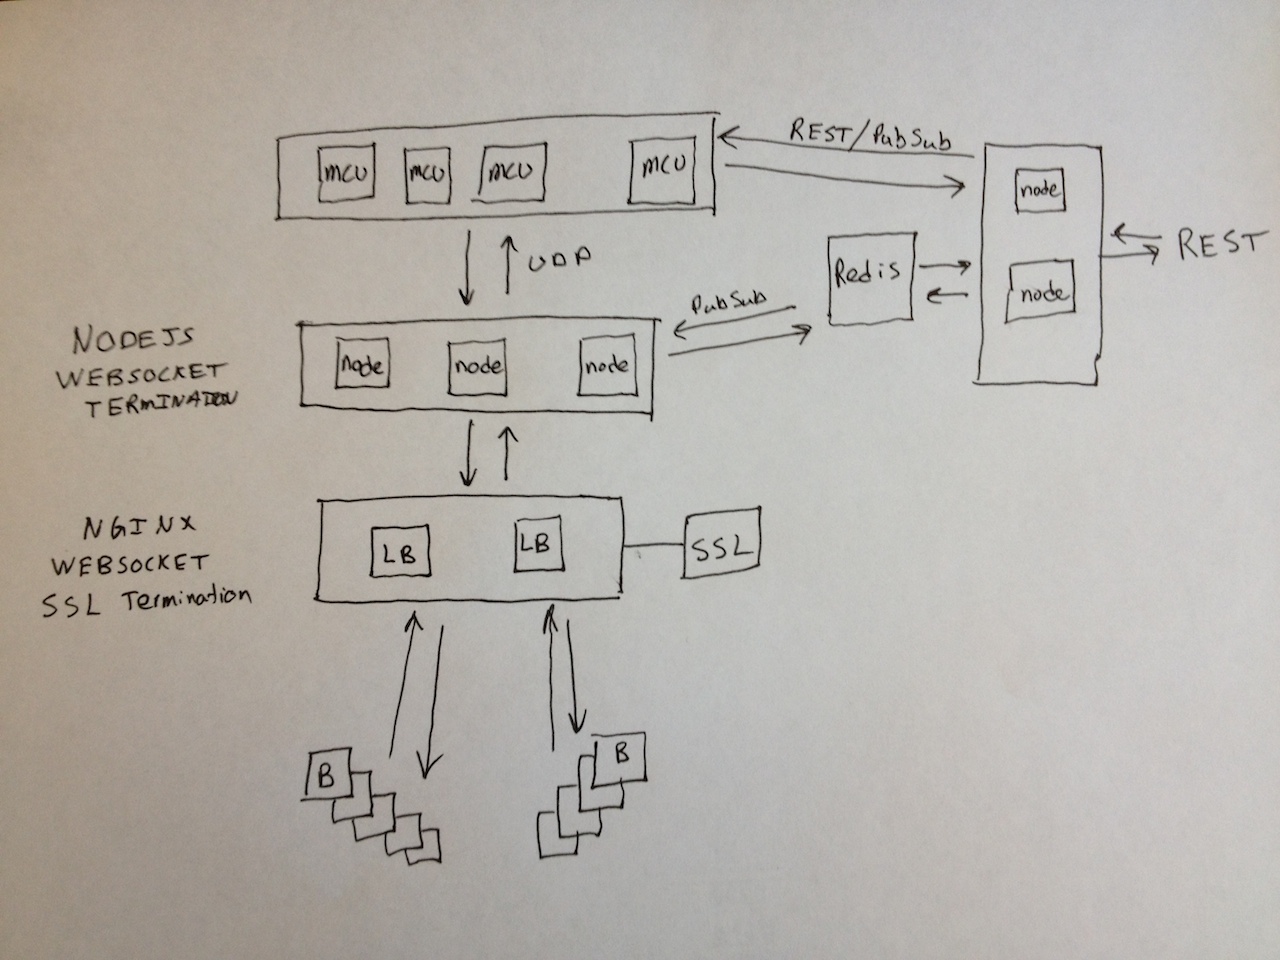 REST/PubSub
MCU
MCU
MCU
MCU
node
REST
UDP
Redis
node
PubSub
NODEJS
WEBSOCKET
TERMINATION
node
node
node
NGINX
WEBSOCKET
SSL Termination
LB
LB
SSL
B
B